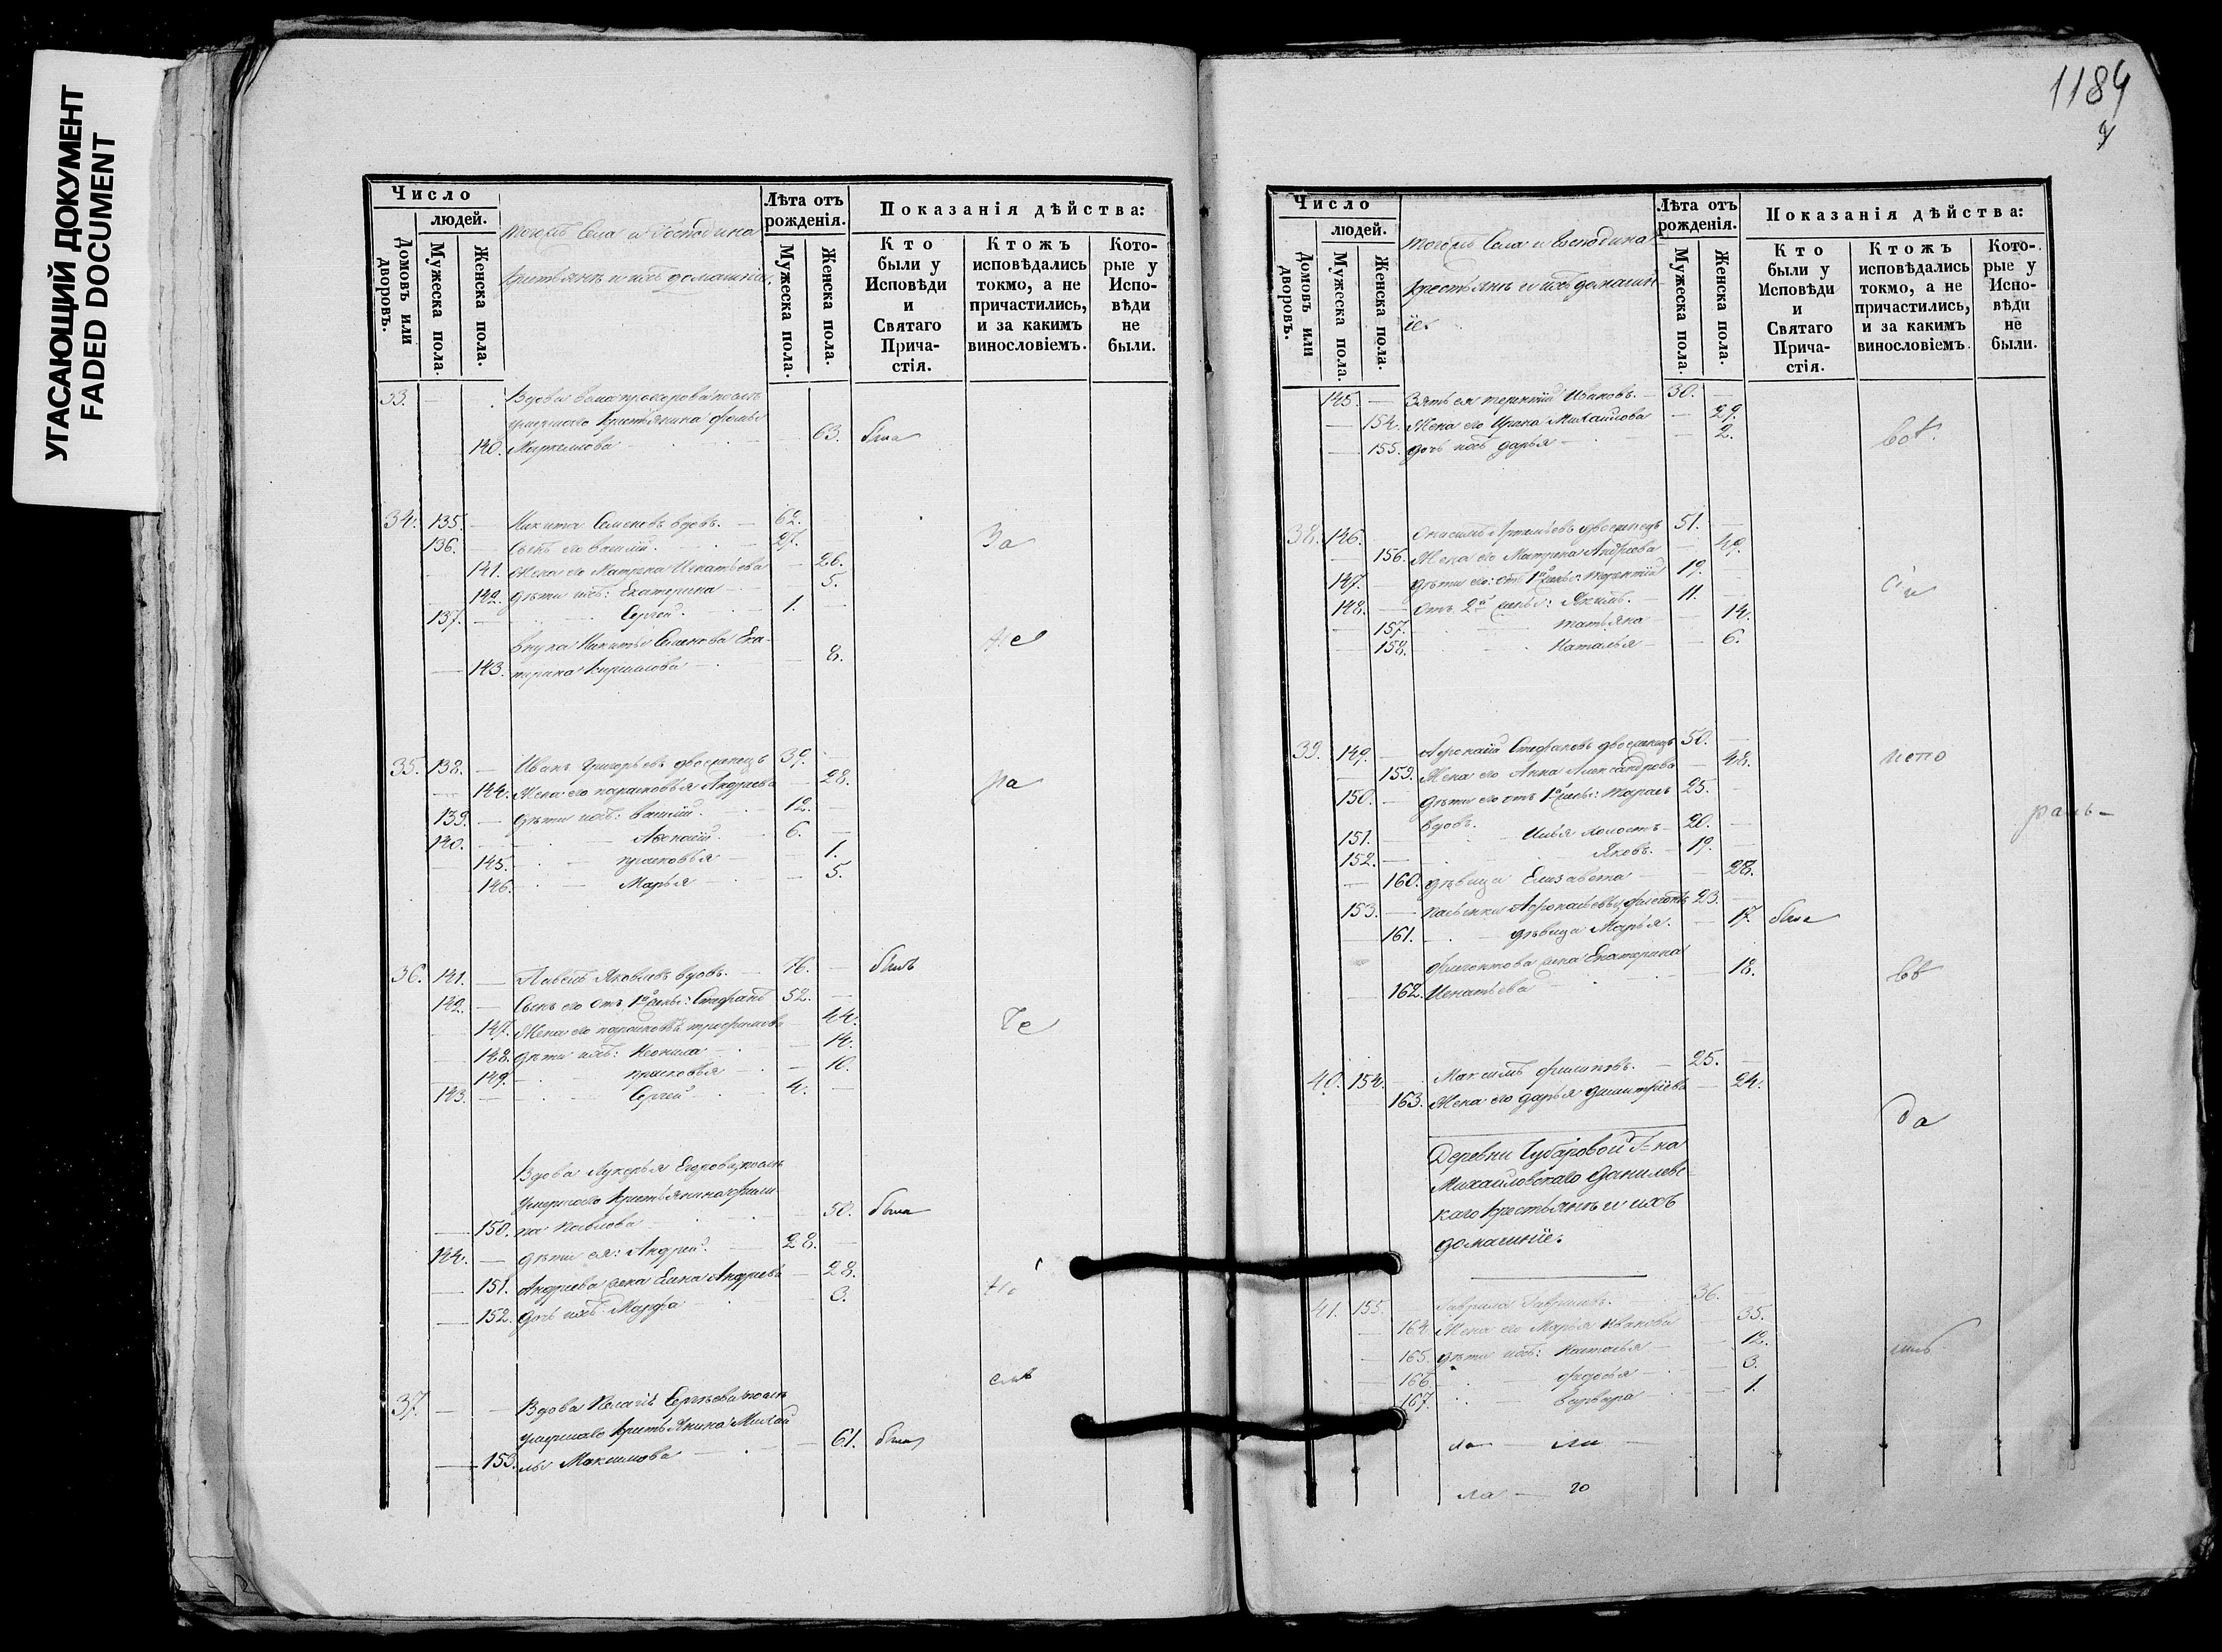 УГАСАЮЩИЙ ДОКУМЕНТ
FADED DOCUMENT
Число
людей.
Домовъ или дворовъ.
Мужеска пола.
Женска пола.
тогожъ Села и Господина
крестьянъ и ихъ домашніе.
Лѣта отъ рожденія.
Мужеска пола.
Женска пола.
Показанія дѣйства:
Кто были у Исповѣди и Святаго Причастія.
Ктожъ исповѣдались токмо, а не причастились, и за какимъ винословіемъ.
Которые у Исповѣди не были.
33. Вдова прохорова послѣ
умершаго крестьянина
140. 63. была
34. 135. Никита Семеновъ вдовъ. 62.
За
136. Сынъ его василій. 27.
141. Жена его Матрена Игнатьева 26.
142. дѣти ихъ: Екатерина 5.
137. Сергей. 1.
внука Никиты Семенова Ека-
143. терина Кирилова 8.
35. 138. Иванъ Григорьевъ двоеженецъ 39.
144. Жена его парасковья Андреева 28.
ра
139. дѣти ихъ: василій. 12.
140. 6.
145. прасковья 1.
146. Марья 5.
36. 141. Павелъ Яковлевъ вдовъ. 76. былъ
142. Сынъ его отъ 1й жены: Стефанъ 52.
147. Жена его парасковья трофимова 44.
148. дѣти ихъ: Неонила 14.
149. прасковья 10.
143. Сергей 4.
Вдова Лукерья Егорова послѣ
умершаго крестьянина Фили-
150. па Павлова 50. была
144. дѣти ея: Андрей. 28.
151. Андреева жена Елена Андреева 28.
152. дочь ихъ Марфа 3.
37. Вдова Пелагія Сергѣева послѣ
умершаго крестьянина Михай
153. лы Максимова 61. была
1184
Число
людей.
Домовъ или дворовъ.
Мужеска пола.
Женска пола.
тогожъ Села и Господина
крестьянъ и ихъ домашні-
іе.
Лѣта отъ рожденія.
Мужеска пола.
Женска пола.
Показанія дѣйства:
Кто были у Исповѣди и Святаго Причастія.
Ктожъ исповѣдались токмо, а не причастились, и за какимъ винословіемъ.
Которые у Исповѣди не были.
145. Зять ея терентій Ивановъ. 30.
154. Жена его Ирина Михайлова 29.
155. дочь ихъ дарья 2.
38. 146. Артемьевъ двоеженецъ 51.
156. Жена его Матрена Андреева 49.
147. дѣти его: отъ 1й жены: терентій 19.
148. отъ 2й жены: Якимъ. 11.
157. татьяна 14.
158. Наталья 6.
39. 149. Стефановъ двоеженецъ 50.
159. Жена его Анна Александрова 48.
испо
150. дѣти его отъ 1й жены: тарасъ 25.
вдовъ.
151. Илья холостъ 20.
152. Яковъ. 19.
160. дѣвица Елизавета 28.
153. 23.
161. дѣвица Марья. 17. была
жена Екатерина
162. Игнатьева 18.
40. 154. Максимъ филиповъ. 25.
163. Жена его дарья дмитріева 24.
да
Деревни Чубаровой Г-на
Михайловскаго данилевс
каго крестьянъ и ихъ
домашніе.
41. 155. Гаврила Гавриловъ. 36.
164. Жена его Марья Иванова 35.
165. дѣти ихъ: Наталья 12.
166. федосья 3.
167. варвара 1.